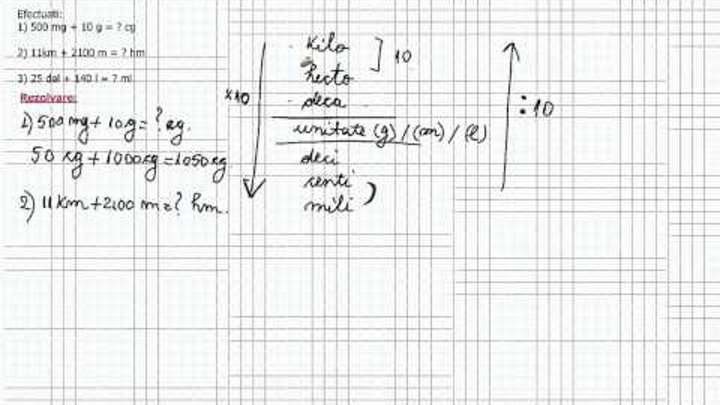 Efectuati:
1) 500 mg + 10 g = ? cg
2) 11km + 2100 m = ? hm
3) 25 dal + 140 l = ? ml
Rezolvare:
1) 500 mg + 10g = ? cg.
50 cg + 1000cg = 1050 cg
2) 11 km + 2100 m = ? hm.
kilo
hecto
deca
unitate (g) / (m) / (l)
deci
centi
mili
10
x10
:10